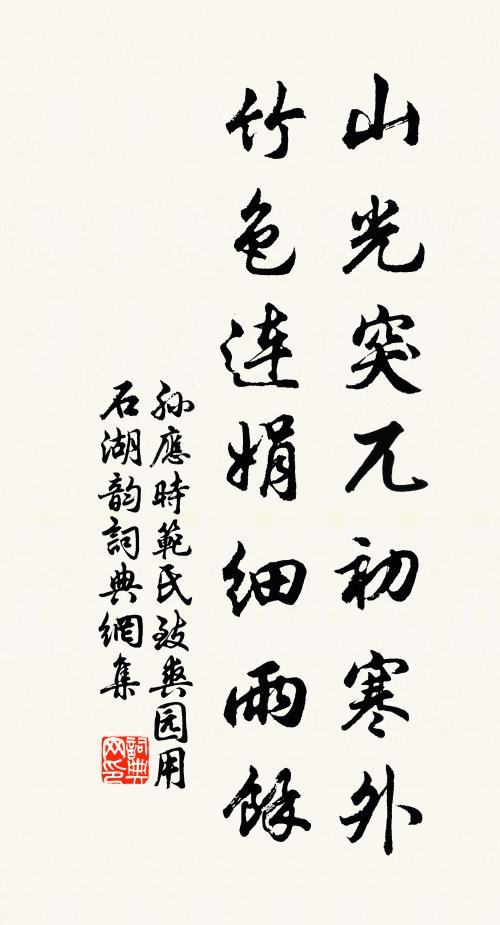 山光突兀初寒外
竹色連娟細雨餘
孙應時範氏致爽园用
石湖韵詞典網集
詞典
网印